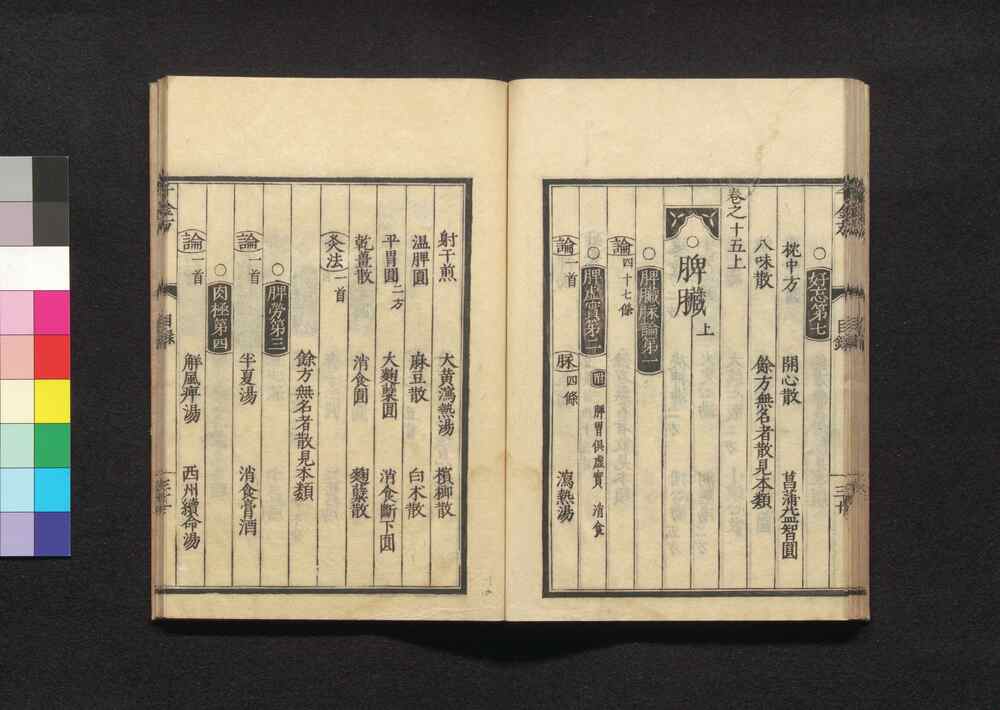 好忘第七
枕中方　開心散　菖蒲益智圓
八味散　餘方無名者散見本類
卷之十五上
脾臟上
脾臟脉論第一
論四十七條
脾虛實第二　附　脾胃俱虛實　消食
論一首　脉四條　瀉熱湯
射干煎　大黃瀉熱湯　檳榔散
溫脾圓　麻豆散　白朮散
平胃圓二方　大麴糵圓　消食斷下圓
乾薑散　消食圓　麴糵散
灸法一首
餘方無名者散見本類
脾勞第三
論一首　半夏湯　消食膏酒
肉極第四
論一首　解風痺湯　西州續命湯
千金方
目錄